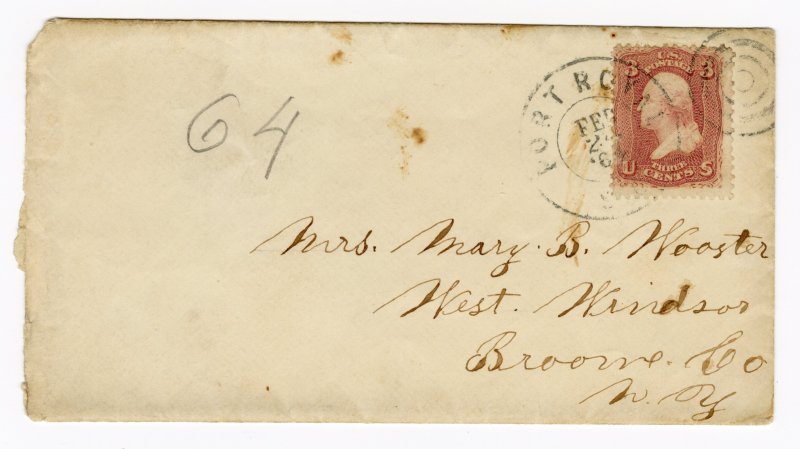 64
PORT ROYAL
FEB
U.S. POSTAGE
3 3
U THREE CENTS S
Mrs. Mary. B. Wooster
West. Windsor
Broome. Co
N. Y